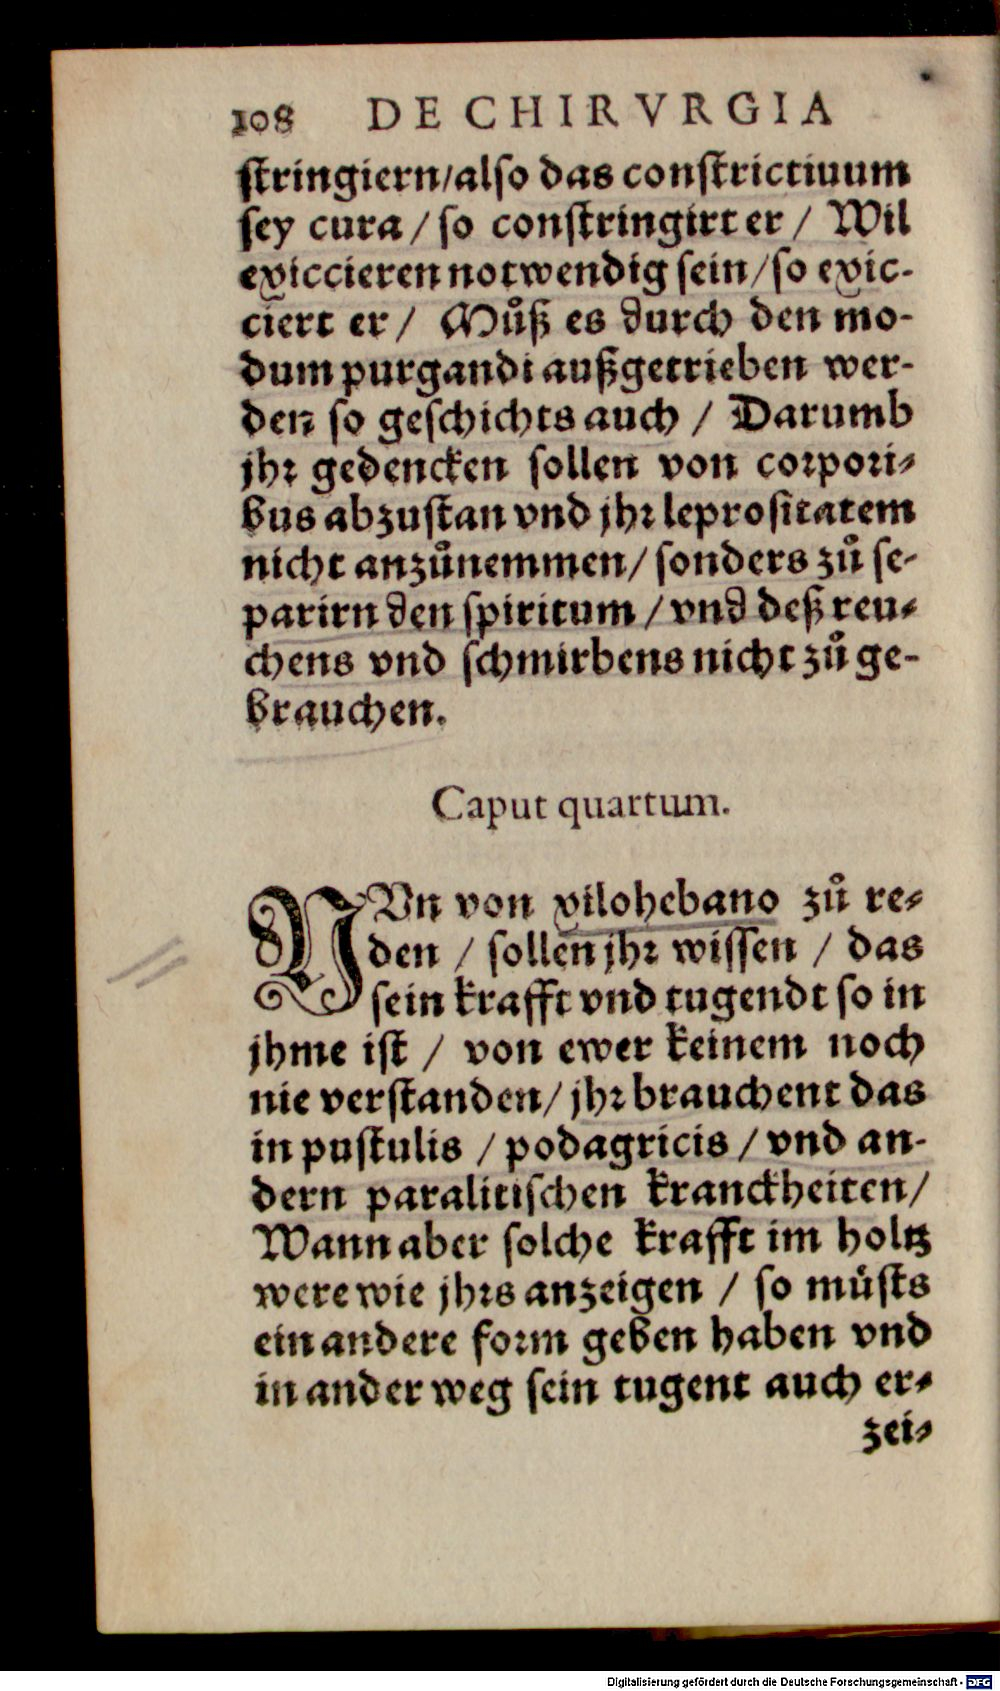 108 DE CHIRVRGIA
stringiern/also das constrictiuum
sey cura / so constringirt er / Wil
exiccieren notwendig sein/so exic-
ciert er / Můß es durch den mo-
dum purgandi außgetrieben wer-
den so geschichts auch / Darumb
jhr gedencken sollen von corpori-
bus abzustan vnd jhr leprositatem
nicht anzůnemmen/ sonders zů se-
parirn den spiritum / vnd deß reu-
chens vnd schmirbens nicht zů ge-
brauchen.
Caput quartum.
NVn von xilohebano zů re-
den / sollen jhr wissen / das
sein krafft vnd tugendt so in
jhme ist / von ewer keinem noch
nie verstanden/ jhr brauchent das
in pustulis / podagricis / vnd an-
dern paralitischen kranckheiten/
Wann aber solche krafft im holtz
were wie jhrs anzeigen / so můsts
ein andere form geben haben vnd
in ander weg sein tugent auch er-
zei-
Digitalisierung gefördert durch die Deutsche Forschungsgemeinschaft - DFG